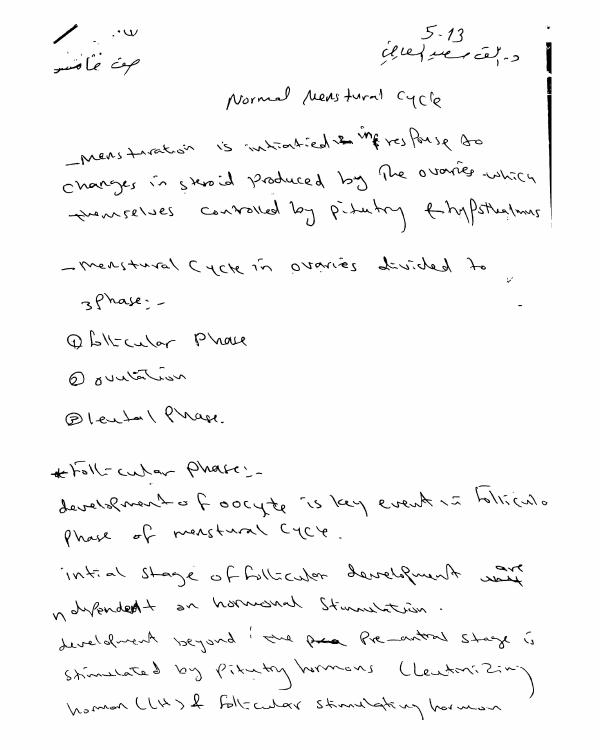 5-13
Normal Menstural Cycle
- Mensturation is intiatied in response to
changes in steroid produced by The ovaries which
themselves controlled by pitutry & hypothalamus
- Menstural Cycle in ovaries divided to
3 Phase:-
① follicular Phase
② ovulation
③ leutal Phase.
* Follicular phase:-
development of oocyte is key event in follicula
Phase of menstural Cycle.
intial stage of follicular development are
ndependent on hormonal Stimulation.
development beyond the Pre-antral stage is
stimulated by Pitutry hormons (Leutinizing
hormon (LH) & follicular stimulating hormon